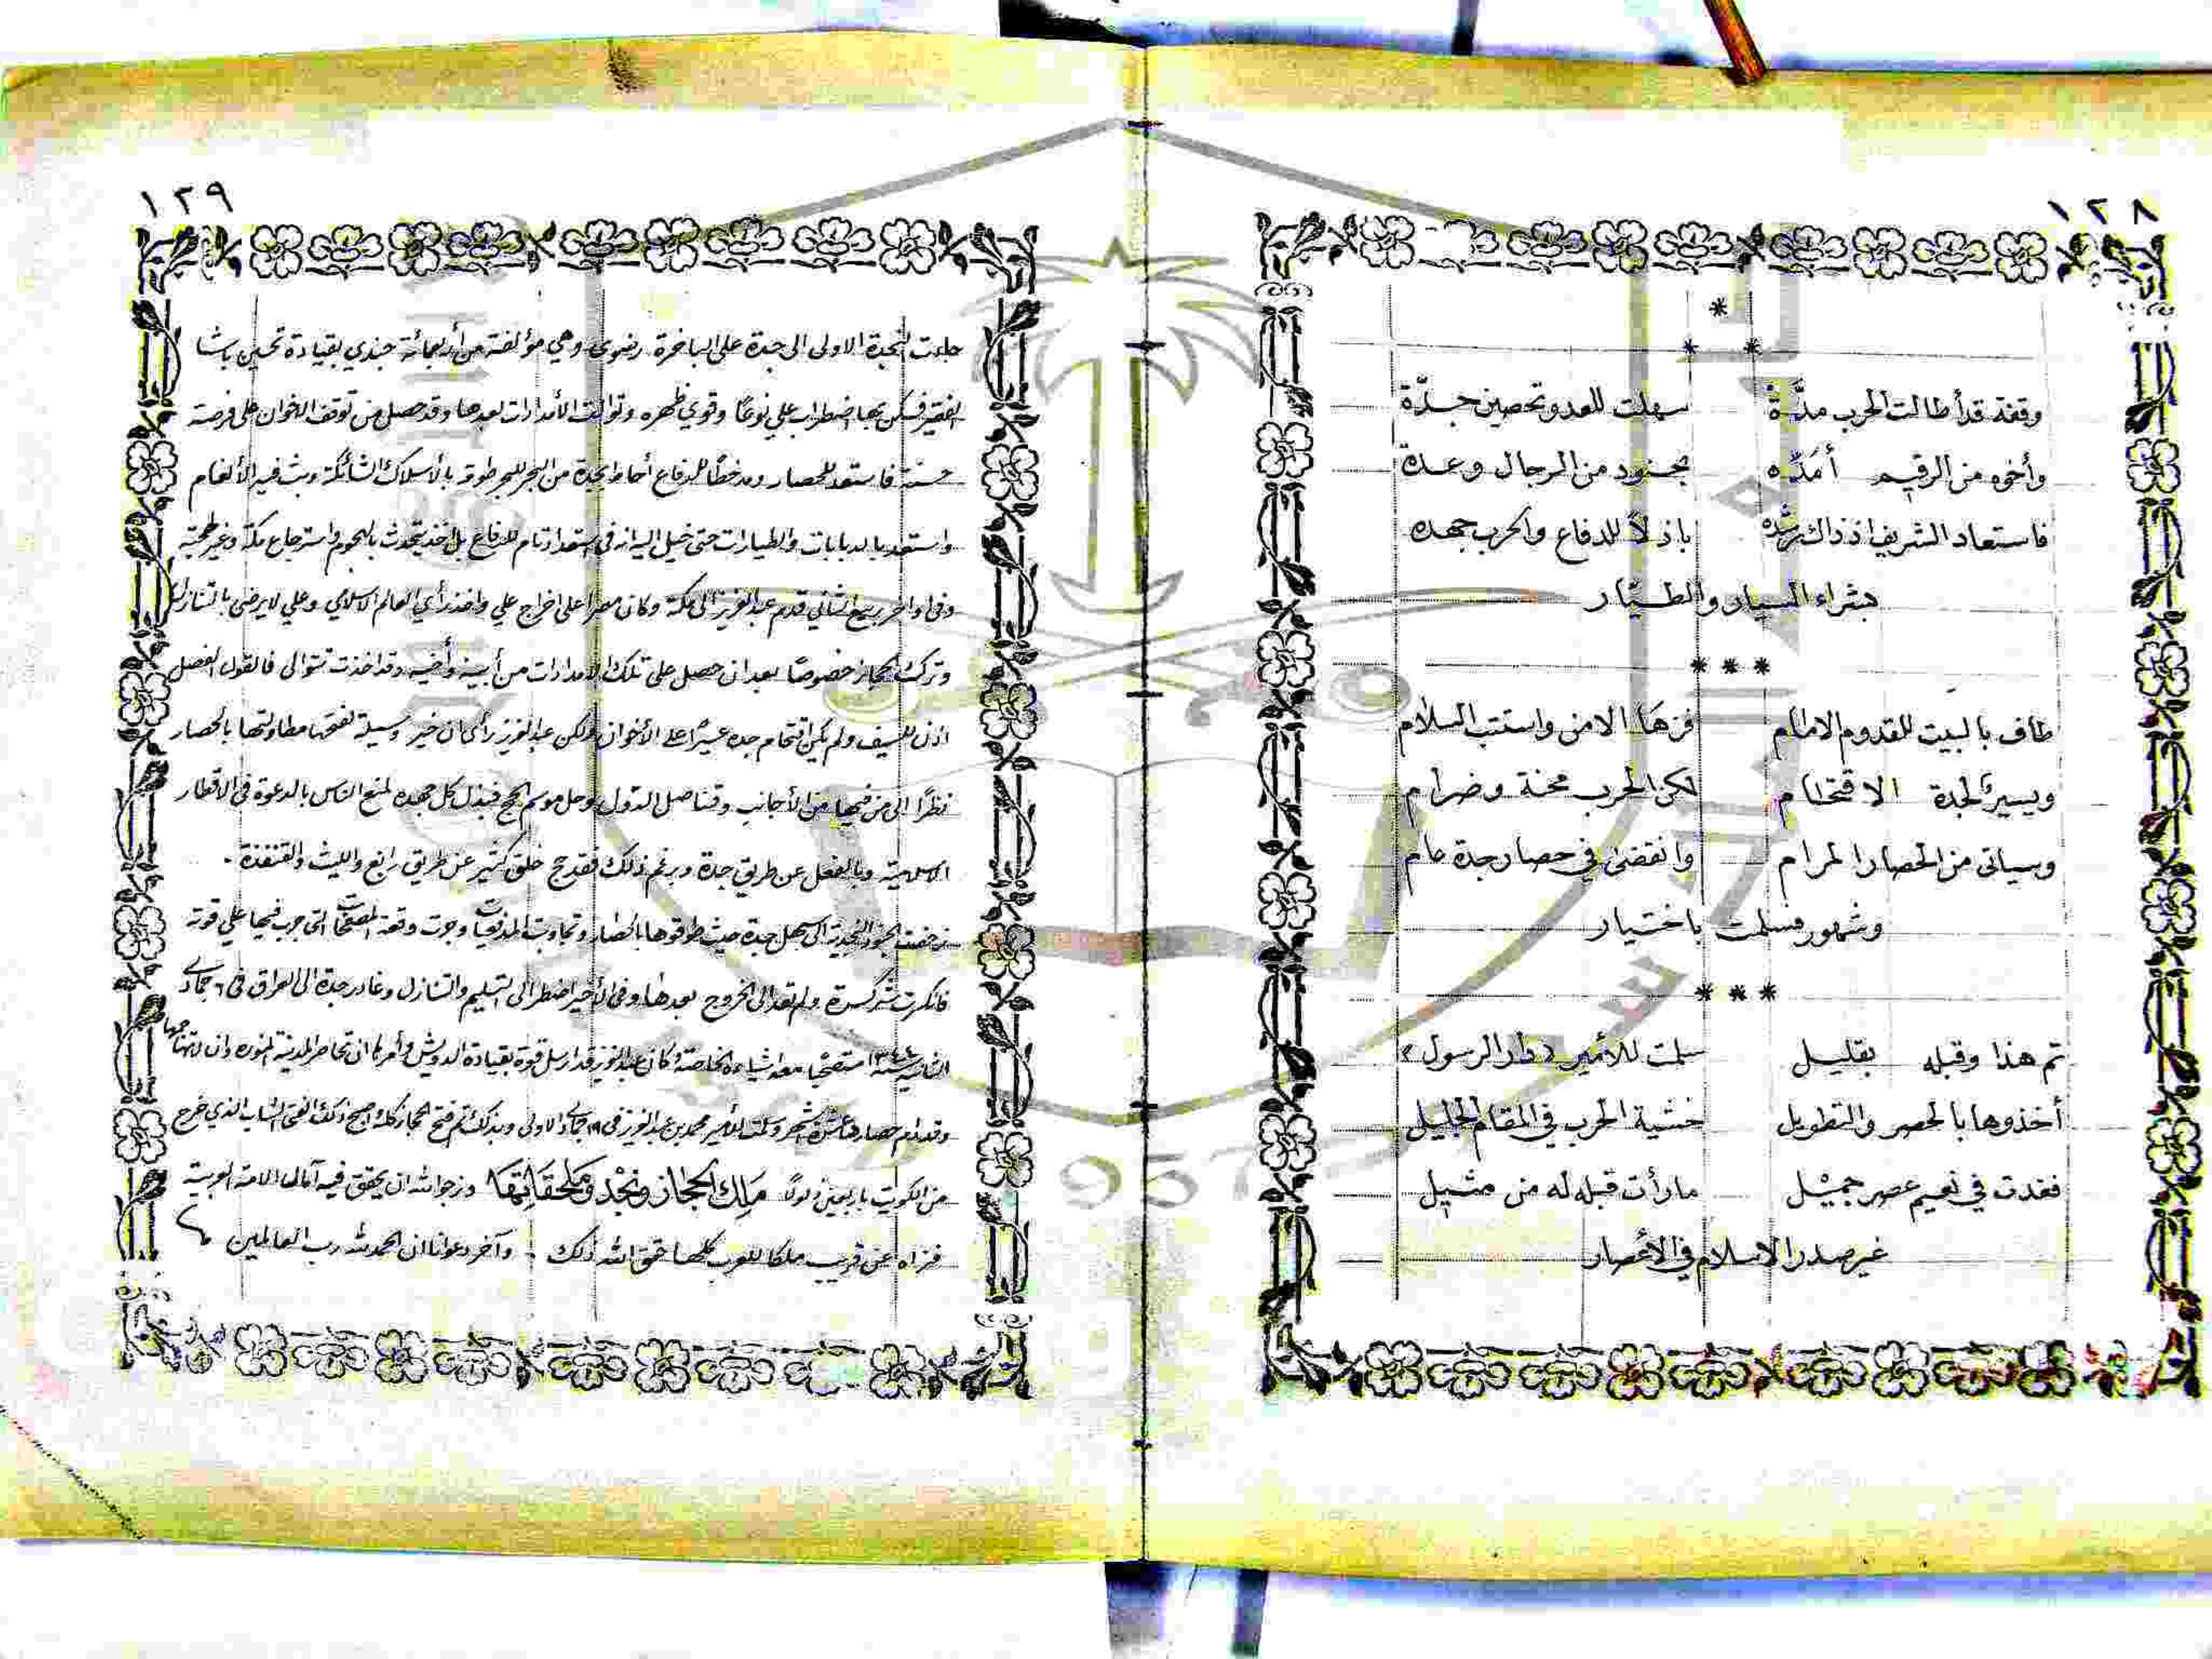 ١٢٨
*
* *
وقفة قد أطالت الحرب مدّة سهلت للعدو تحصين جدّة
وأخوه من الرقيم أمدّه بجنود من الرجال وعدة
فاستعاد الشريف اذ ذاك رشده باذلاً للدفاع والحرب جهده
بشراء السيار والطيّار
* * *
طاف بالبيت للقدوم الامام فزها الامن واستتب السلام
ويسير لجدة الاقتحام لكن الحرب محنة وضرام
وسيأتى من الحصار المرام وانقضى في حصار جدة عام
وشهور فسلمت باختيار
* * *
تم هذا وقبله بقليل سلمت للأمير «دار الرسول»
أخذوها بالحصر والتطويل خشية الحرب في المقام الجليل
فغدت في نعيم عصر جميل ما رأت قبله له من مثيل
غير صدر الاسلام في الأعصار
١٢٩
جاءت النجدة الاولى الى جدة على الباخرة رضوى وهي مؤلفة من أربعمائة جندي بقيادة تحسين باشا
الفقير فسكن بها اضطراب علي نوعًا وقوي ظهره وتوالت الأمدادات بعدها وقد حصل من توقف الاخوان على فرصة
حسنة فاستعد للحصار ومد خطًا للدفاع أحاط بجدة من البحر للبحر طوقه بالأسلاك الشائكة وبث فيه الألغام
واستعد بالدبابات والطيارات حتى خيل اليه انه في استعداد تام للدفاع بل أخذ يتحدث بالهجوم واسترجاع مكة وغير
وفى اواخر ربيع الثاني قدم عبد العزيز الى مكة وكان مصرا على اخراج علي واخذ رأي العالم الاسلامي وعلي لا يرضى بالتنازل
وترك الحجاز خصوصًا بعد ان حصل على تلك الامدادات من أبيه وأخيه وقد اخذت تتوالى فالقول الفصل
اذن للسيف ولم يكن اقتحام جده عسيرًا على الأخوان ولكن عبد العزيز رأى ان خير وسيلة لفتحها مطاولتها بالحصار
نظرًا الى من فيها من الأجانب وقناصل الدول وحل موسم الحج فبذل كل جهده لمنع الناس بالدعوة فى الاقطار
الاسلامية وبالفعل عن طريق جدة وبرغم ذلك فقد حج خلق كثير عن طريق رابغ والليث والقنفذة .
زحفت الجنود النجدية الى سهل جدة حيث طوقوها بالحصار وتجاوبت المدفعيات وجرت وقعة المصفحات التى جرب فيها علي قوته
فانكسرت شر كسرة ولم تعد الى الخروج بعدها وفى الأخير اضطر الى التسليم والتنازل وغادر جدة الى العراق فى ٦ جمادى
الثانية سنة ١٣٤٤ مستصحبًا معه اشياءه الخاصة وكان عبد العزيز قد ارسل قوة بقيادة الدويش وأمرها ان تحاصر المدينة المنوره وان لا تهاجمها
وقد دام حصارها عشرة اشهر وسلمت للأمير محمد بن عبد العزيز فى ١٩ جمادى الاولى وبذلك تم فتح الحجاز كله واصبح ذلك الفتى الشاب الذي خرج
من الكويت باربعين ذلولًا مَلِك الحجاز ونَجْد ومُلحقَاتِهَا ونرجو الله ان يحقق فيه آمال الامة العربية
فنراه عن قريب ملكا للعرب كلها حقق الله ذلك وآخر دعوانا ان الحمد لله رب العالمين